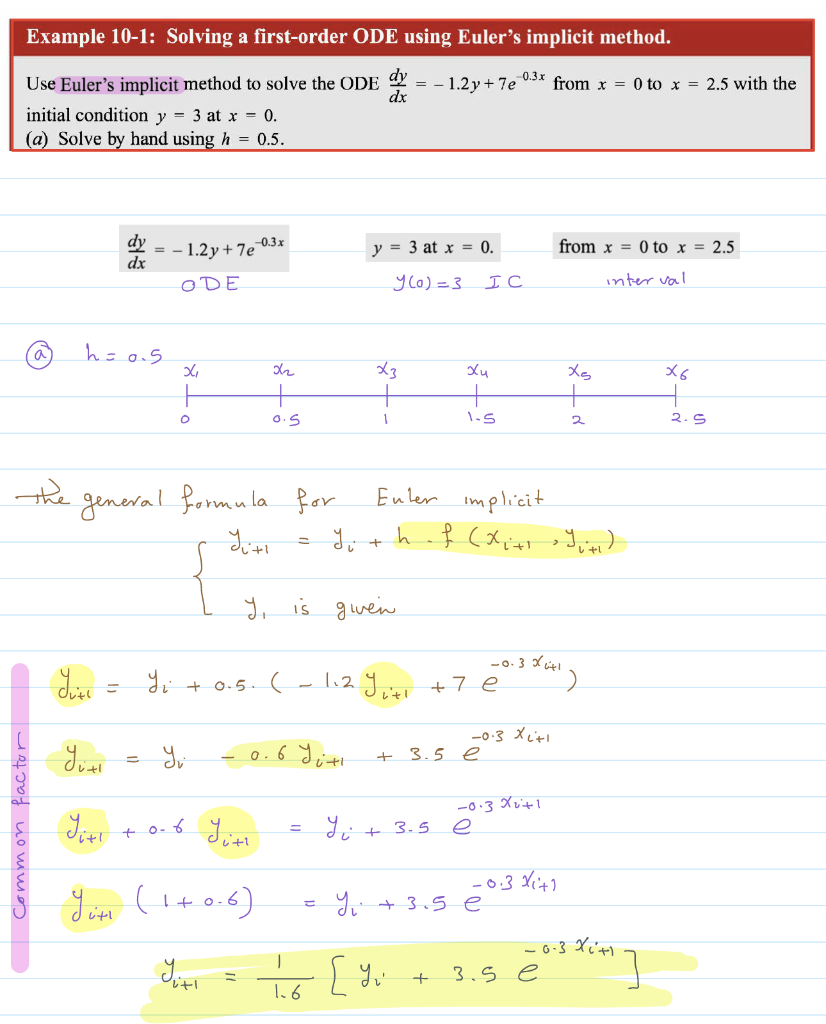 Example 10-1: Solving a first-order ODE using Euler's implicit method.
Use Euler's implicit method to solve the ODE dy/dx = – 1.2y + 7e^–0.3x from x = 0 to x = 2.5 with the
initial condition y = 3 at x = 0.
(a) Solve by hand using h = 0.5.
dy/dx = – 1.2y + 7e^–0.3x y = 3 at x = 0. from x = 0 to x = 2.5
ODE y(0) = 3 IC interval
(a) h = 0.5
x₁ x₂ x₃ x₄ x₅ x₆
0 0.5 1 1.5 2 2.5
the general formula for Euler implicit
y_i+1 = y_i + h . f (x_i+1 , y_i+1)
y₁ is given
Common factor
y_i+1 = y_i + 0.5 . ( – 1.2 y_i+1 + 7 e^–0.3 x_i+1 )
y_i+1 = y_i – 0.6 y_i+1 + 3.5 e^–0.3 x_i+1
y_i+1 + 0.6 y_i+1 = y_i + 3.5 e^–0.3 x_i+1
y_i+1 ( 1 + 0.6 ) = y_i + 3.5 e^–0.3 x_i+1
y_i+1 = 1/1.6 [ y_i + 3.5 e^–0.3 x_i+1 ]